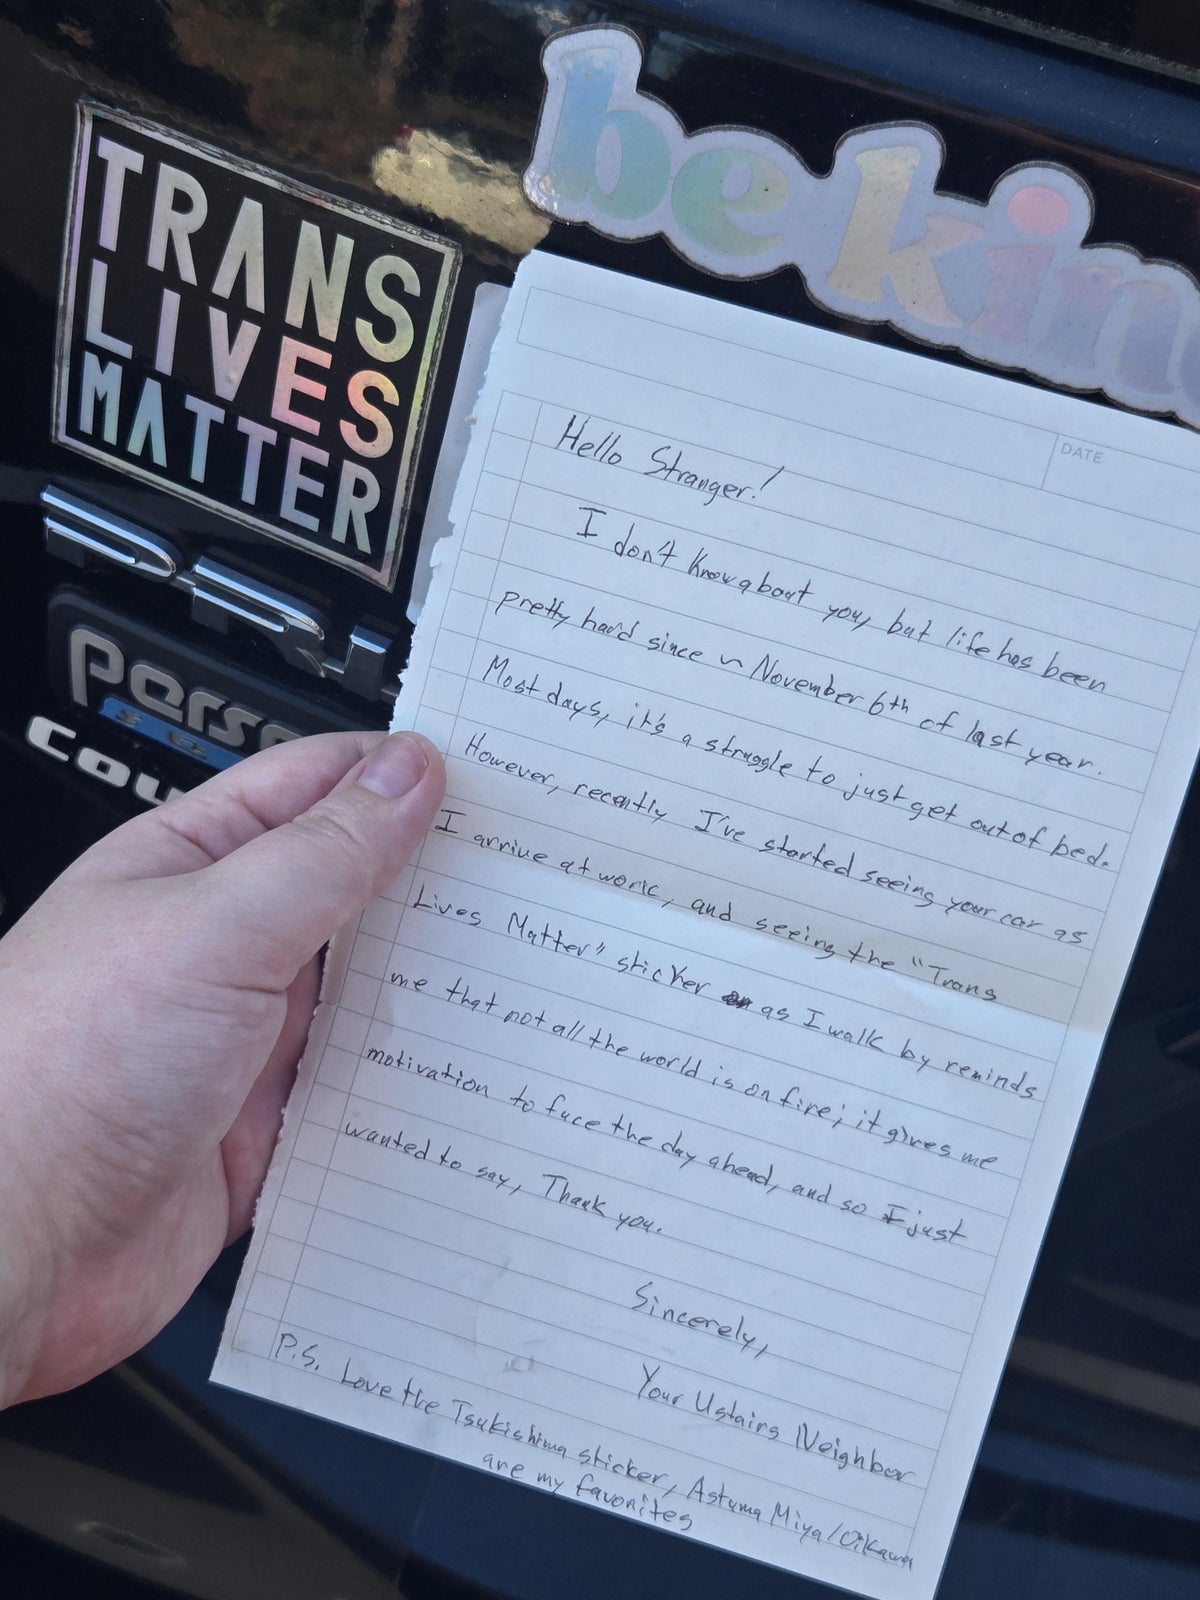 TRANS
LIVES
MATTER
be kin
PRI
perso
cou
DATE
Hello Stranger!
I don't know about you, but life has been
pretty hard since ~ November 6th of last year.
Most days, it's a struggle to just get out of bed.
However, recently I've started seeing your car as
I arrive at work, and seeing the "Trans
Lives Matter" sticker as I walk by reminds
me that not all the world is on fire; it gives me
motivation to face the day ahead, and so I just
wanted to say, Thank you.
Sincerely,
Your Ustairs Neighbor
P.S. Love the Tsukishima sticker, Astuma Miya/Oikawa
are my favorites